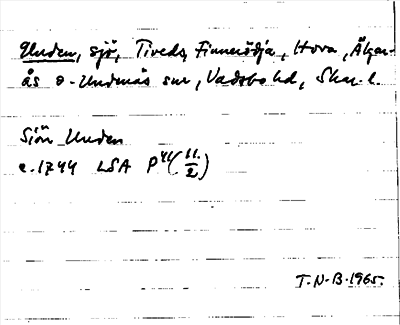 Unden, sjö, Tiveds, Finnerödja, Hova, Älgar-
ås o. Undenäs snr, Vadsbo hd, Skar. l.
Sjön Unden
c. 1744 LSA P 41 (11/2)
T.N-B. 1965.